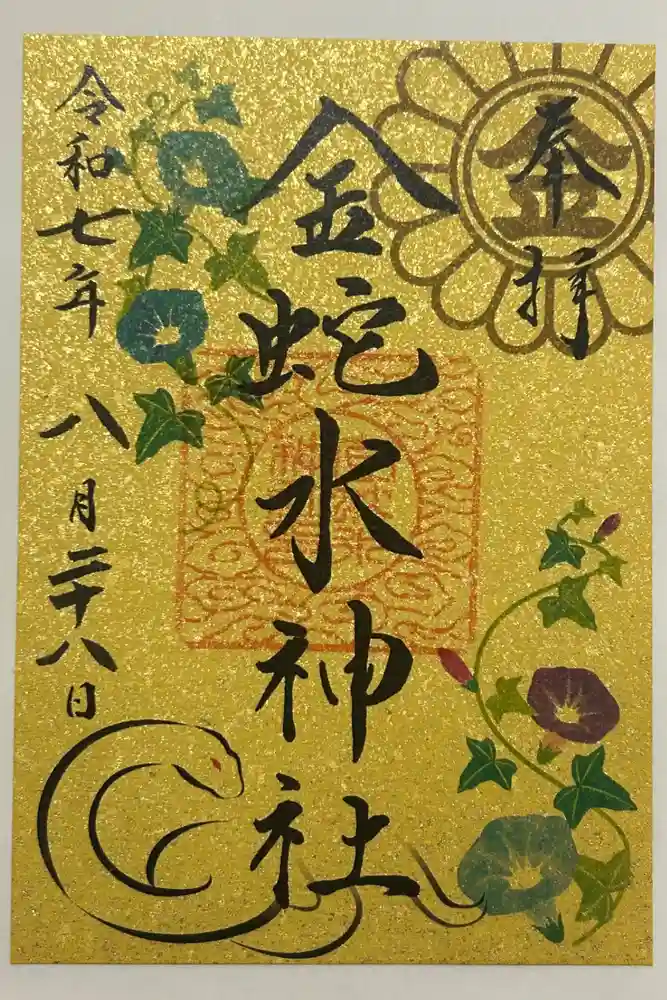 奉拝
金
金蛇水神社
令和七年八月二十八日